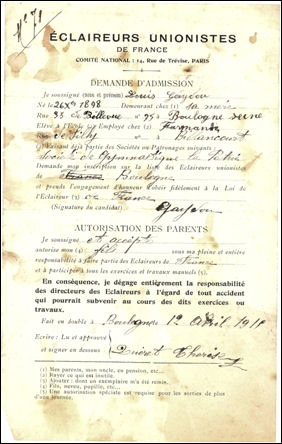 N° 71
ÉCLAIREURS UNIONISTES
DE FRANCE
COMITÉ NATIONAL : 14, Rue de Trévise, PARIS
DEMANDE D'ADMISSION
Je soussigné (nom et prénom) Louis
Né le 26 Xbre 1898 Demeurant chez (1) sa mère
Rue de Bellevue n° 95 à Boulogne Seine
Elève à l'Ecole Employé chez (2) Farman
Rue de Silly Billancourt
(3) Faisant déjà partie des Sociétés ou Patronages suivants
Société de Gymnastique la
Demande mon inscription sur la liste des Eclaireurs unionistes
de France Boulogne
et prends l'engagement d'honneur d'obéir fidèlement à la Loi de
l'Eclaireur (3) de France
(Signature du candidat)
AUTORISATION DES PARENTS
Je soussigné et accepte
autorise mon (4) fils sous ma pleine et entière
responsabilité à faire partie des Eclaireurs de France
et à participer à tous les exercices et travaux manuels (5).
En conséquence, je dégage entièrement la responsabilité
des directeurs des Eclaireurs à l'égard de tout accident
qui pourrait subvenir au cours des dits exercices ou
travaux.
Fait en double à Boulogne, 1er Avril 191
Ecrire : Lu et approuvé
et signer en dessous
(1) Mes parents, mon oncle, en pension, etc...
(2) Rayer ce qui est inutile.
(3) Ajouter : dont un exemplaire m'a été remis.
(4) Fils, neveu, pupille, etc...
(5) Une autorisation spéciale est requise pour les sorties de plus
d'une journée.